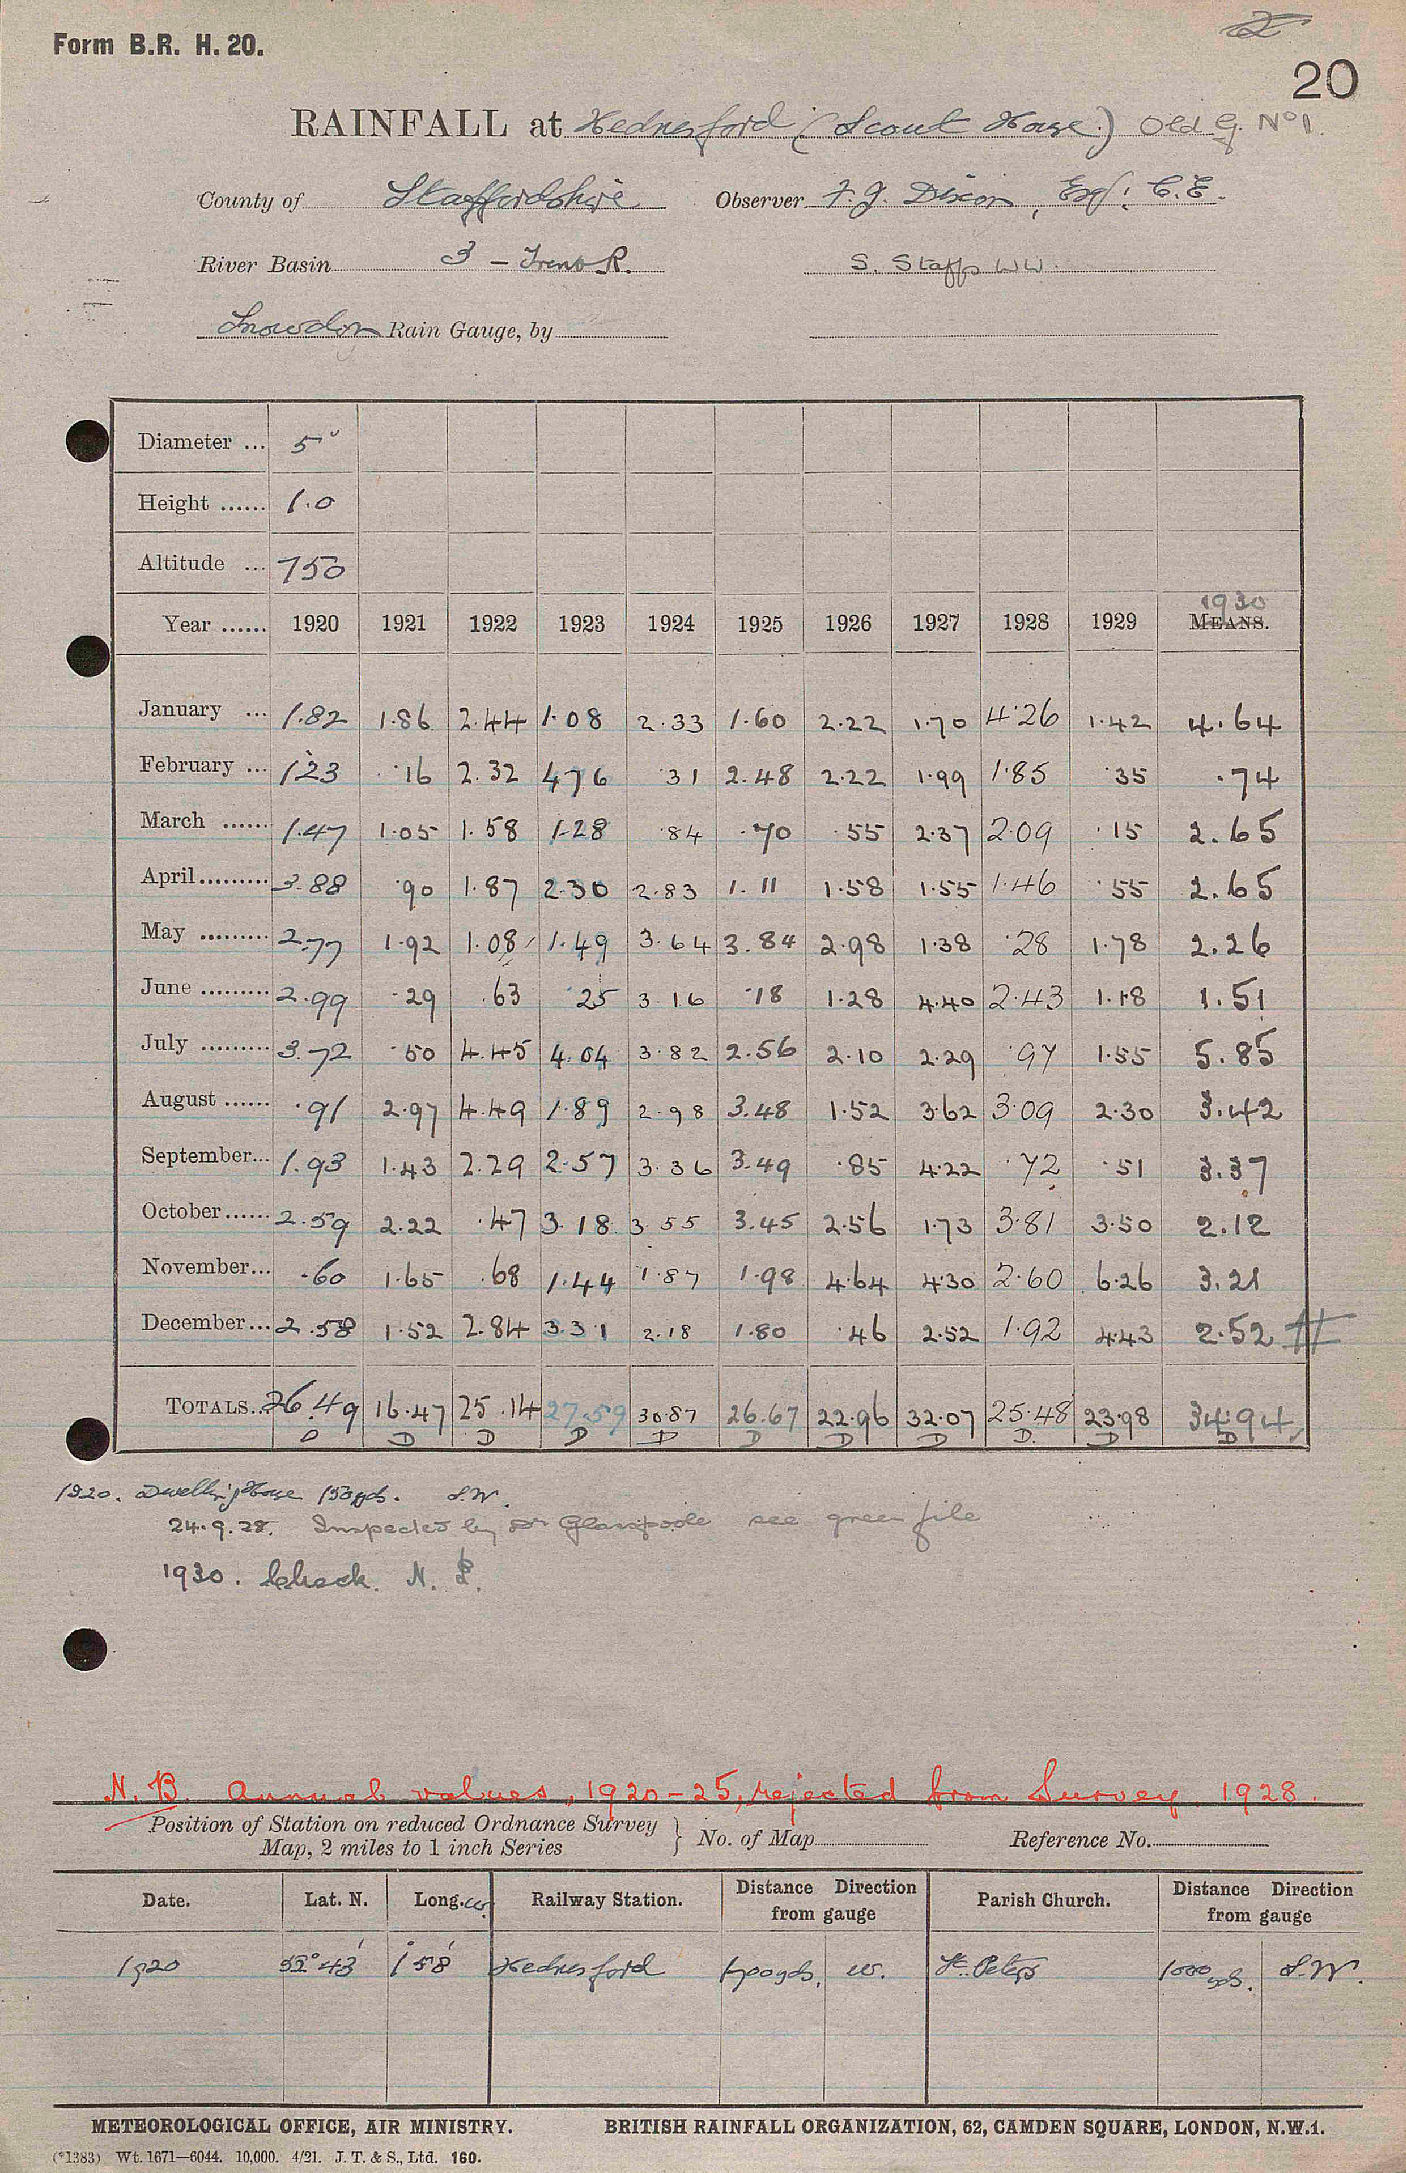 Form B.R. H. 20.
20
RAINFALL at Hednesford (Scout House) Old G. No 1.
County of Staffordshire Observer F. J. Dixon, Esq; C.E.
River Basin 3 - Trent R. S. Staffs WW.
Snowdon Rain Gauge, by
Diameter ... 5"
Height ...... 1.0
Altitude ... 750
1930
Year ...... 1920 1921 1922 1923 1924 1925 1926 1927 1928 1929 MEANS.
January ... 1.82 1.86 2.44 1.08 2.33 1.60 2.22 1.70 4.26 1.42 4.64
February ... 1.23 .16 2.32 4.76 .31 2.48 2.22 1.99 1.85 .35 .74
March ...... 1.47 1.05 1.58 1.28 .84 .70 .55 2.37 2.09 .15 2.65
April......... 3.88 .90 1.87 2.30 2.83 1.11 1.58 1.55 1.46 .55 2.65
May ......... 2.77 1.92 1.08 1.49 3.64 3.84 2.98 1.38 .28 1.78 2.26
June ......... 2.99 .29 .63 .25 3.16 .18 1.28 4.40 2.43 1.18 1.51
July ......... 3.72 .50 4.45 4.04 3.82 2.56 2.10 2.29 .97 1.55 5.85
August ...... .91 2.97 4.49 1.89 2.98 3.48 1.52 3.62 3.09 2.30 3.42
September... 1.93 1.43 2.29 2.57 3.36 3.49 .85 4.22 .72 .51 3.37
October...... 2.59 2.22 .47 3.18 3.55 3.45 2.56 1.73 3.81 3.50 2.12
November... .60 1.65 .68 1.44 1.87 1.98 4.64 4.30 2.60 6.26 3.21
December... 2.58 1.52 2.84 3.31 2.18 1.80 .46 2.52 1.92 4.43 2.52 #
TOTALS... 26.49 16.47 25.14 27.59 30.87 26.67 22.96 32.07 25.48 23.98 34.94
D D D D D D D D D. D D
1920. Dwelling House 150yds. S.W.
24.9.28. Inspected by Dr Glasspoole see green file
1930. Check. N.
N.B. Annual values, 1920-25, rejected from Survey 1928.
Position of Station on reduced Ordnance Survey
Map, 2 miles to 1 inch Series } No. of Map Reference No.
Date. Lat. N. Long. W. Railway Station. Distance Direction from gauge Parish Church. Distance Direction from gauge
1920 52° 43' 1° 58' Hednesford 1700yds. W. St. Peters 1000 yds. S.W.
METEOROLOGICAL OFFICE, AIR MINISTRY. BRITISH RAINFALL ORGANIZATION, 62, CAMDEN SQUARE, LONDON, N.W.1.
(*1383) Wt. 1671—6044. 10,000. 4/21. J. T. & S., Ltd. 160.